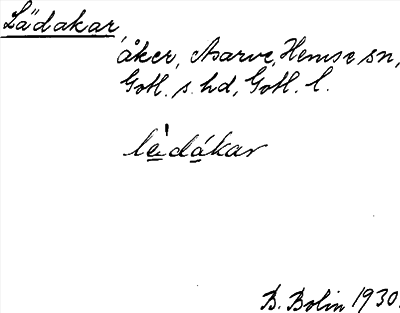 Lädakar
åker, Asarve, Hemse sn,
Gotl. s. hd, Gotl. l.
lädákar
B. Bolin 1930.